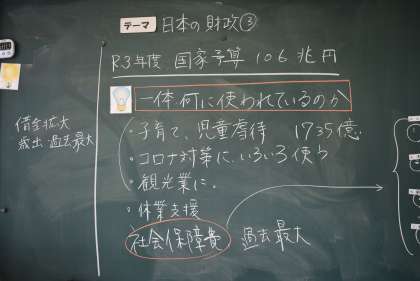 テーマ 日本の財政③
R3年度 国家予算 106兆円
一体、何に使われているのか
借金拡大
歳出 過去最大
・子育て、児童虐待 1735億
・コロナ対策に、いろいろ使う
・観光業に。
・休業支援
社会保障費 過去最大